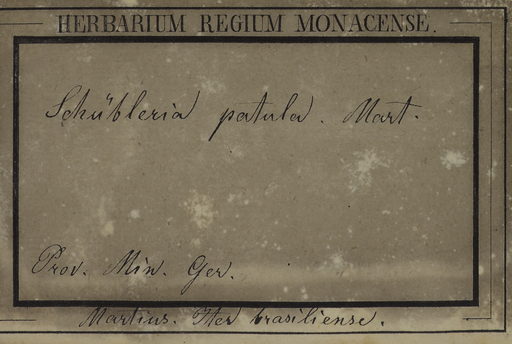 HERBARIUM REGIUM MONACENSE.
Schübleria patula. Mart.
Prov. Min. Ger.
Martius. Iter brasiliense.